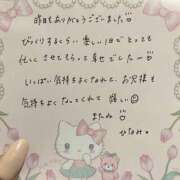 昨日もありがとうございました♡
びっくりするくらい楽しい1日でとっても
忙しくさせてもらって幸せでした〜♡
いっぱい気持ちよくなれたし、お兄様も
気持ちよくなってくれて嬉しい☺
またね♡
ひなみ。